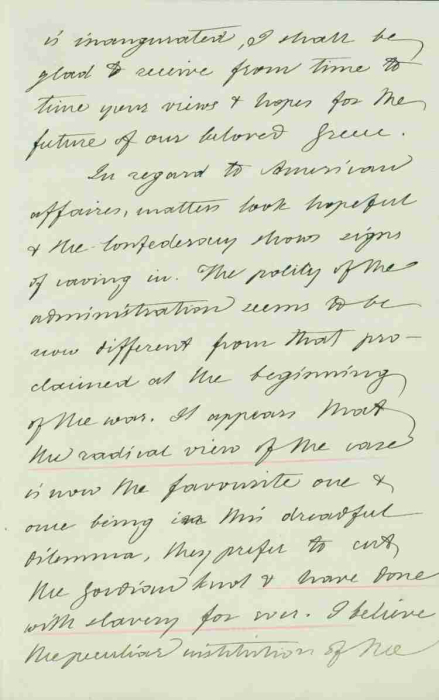 is inaugurated, I shall be
glad to receive from time to
time your views & hopes for the
future of our beloved Greece.
In regard to American
affaires, matters look hopeful
& the Confederacy shows signs
of caving in. The policy of the
administration seems to be
now different from that pro-
claimed at the beginning
of the war. It appears that
the radical view of the case
is now the favourite one &
once being in this dreadful
dilemma, they prefer to cut
the gordian knot & have done
with slavery for ever. I believe
the peculiar institution of the